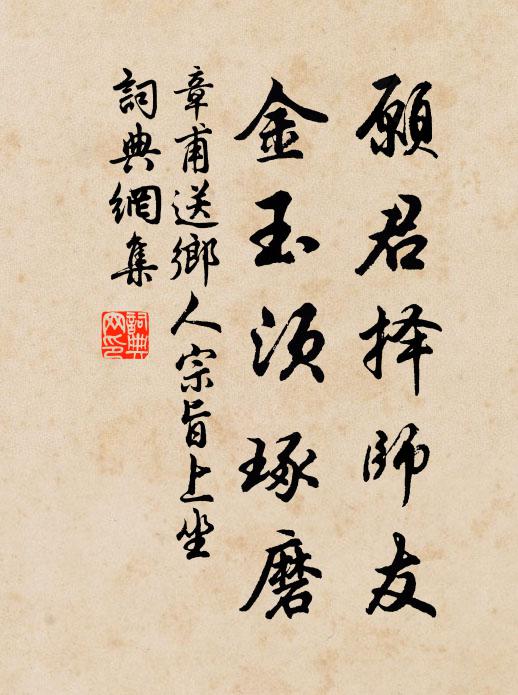 願君择師友
金玉须琢磨
章甫送鄉人宗旨上坐
詞典網集
詞典網印